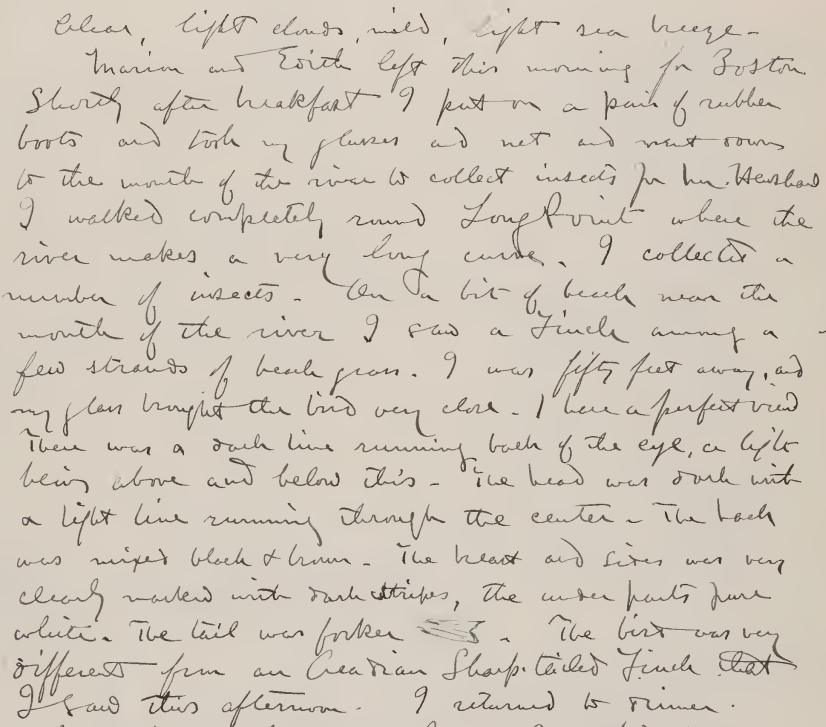 Clear, light clouds, mild, light sea breeze -
Marion and Edith left this morning for Boston
Shortly after breakfast I put on a pair of rubber
boots and took my glasses and net and went down
to the mouth of the river to collect insects for Mr. Henshaw
I walked completely round Long Point where the
river makes a very long curve. I collected a
number of insects - On a bit of beach near the
mouth of the river I saw a Finch among a
few strands of beach grass. I was fifty feet away, and
my glass brought the bird very close - I had a perfect view
There was a dark line running back of the eye, a light
being above and below this - The head was dark with
a light line running through the center - The back
was mixed black & brown - The breast and sides was very
clearly marked with dark stripes, the under parts pure
white. The tail was forked - The bird was very
different from an Acadian Sharp-tailed Finch that
I saw this afternoon. I returned to dinner.